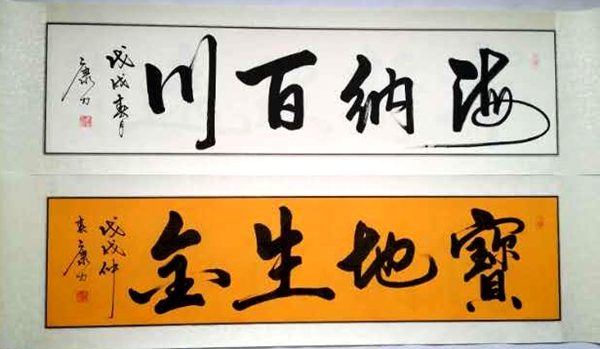 海納百川
戊戌春月
康方
寶地生金
戊戌仲
春康方